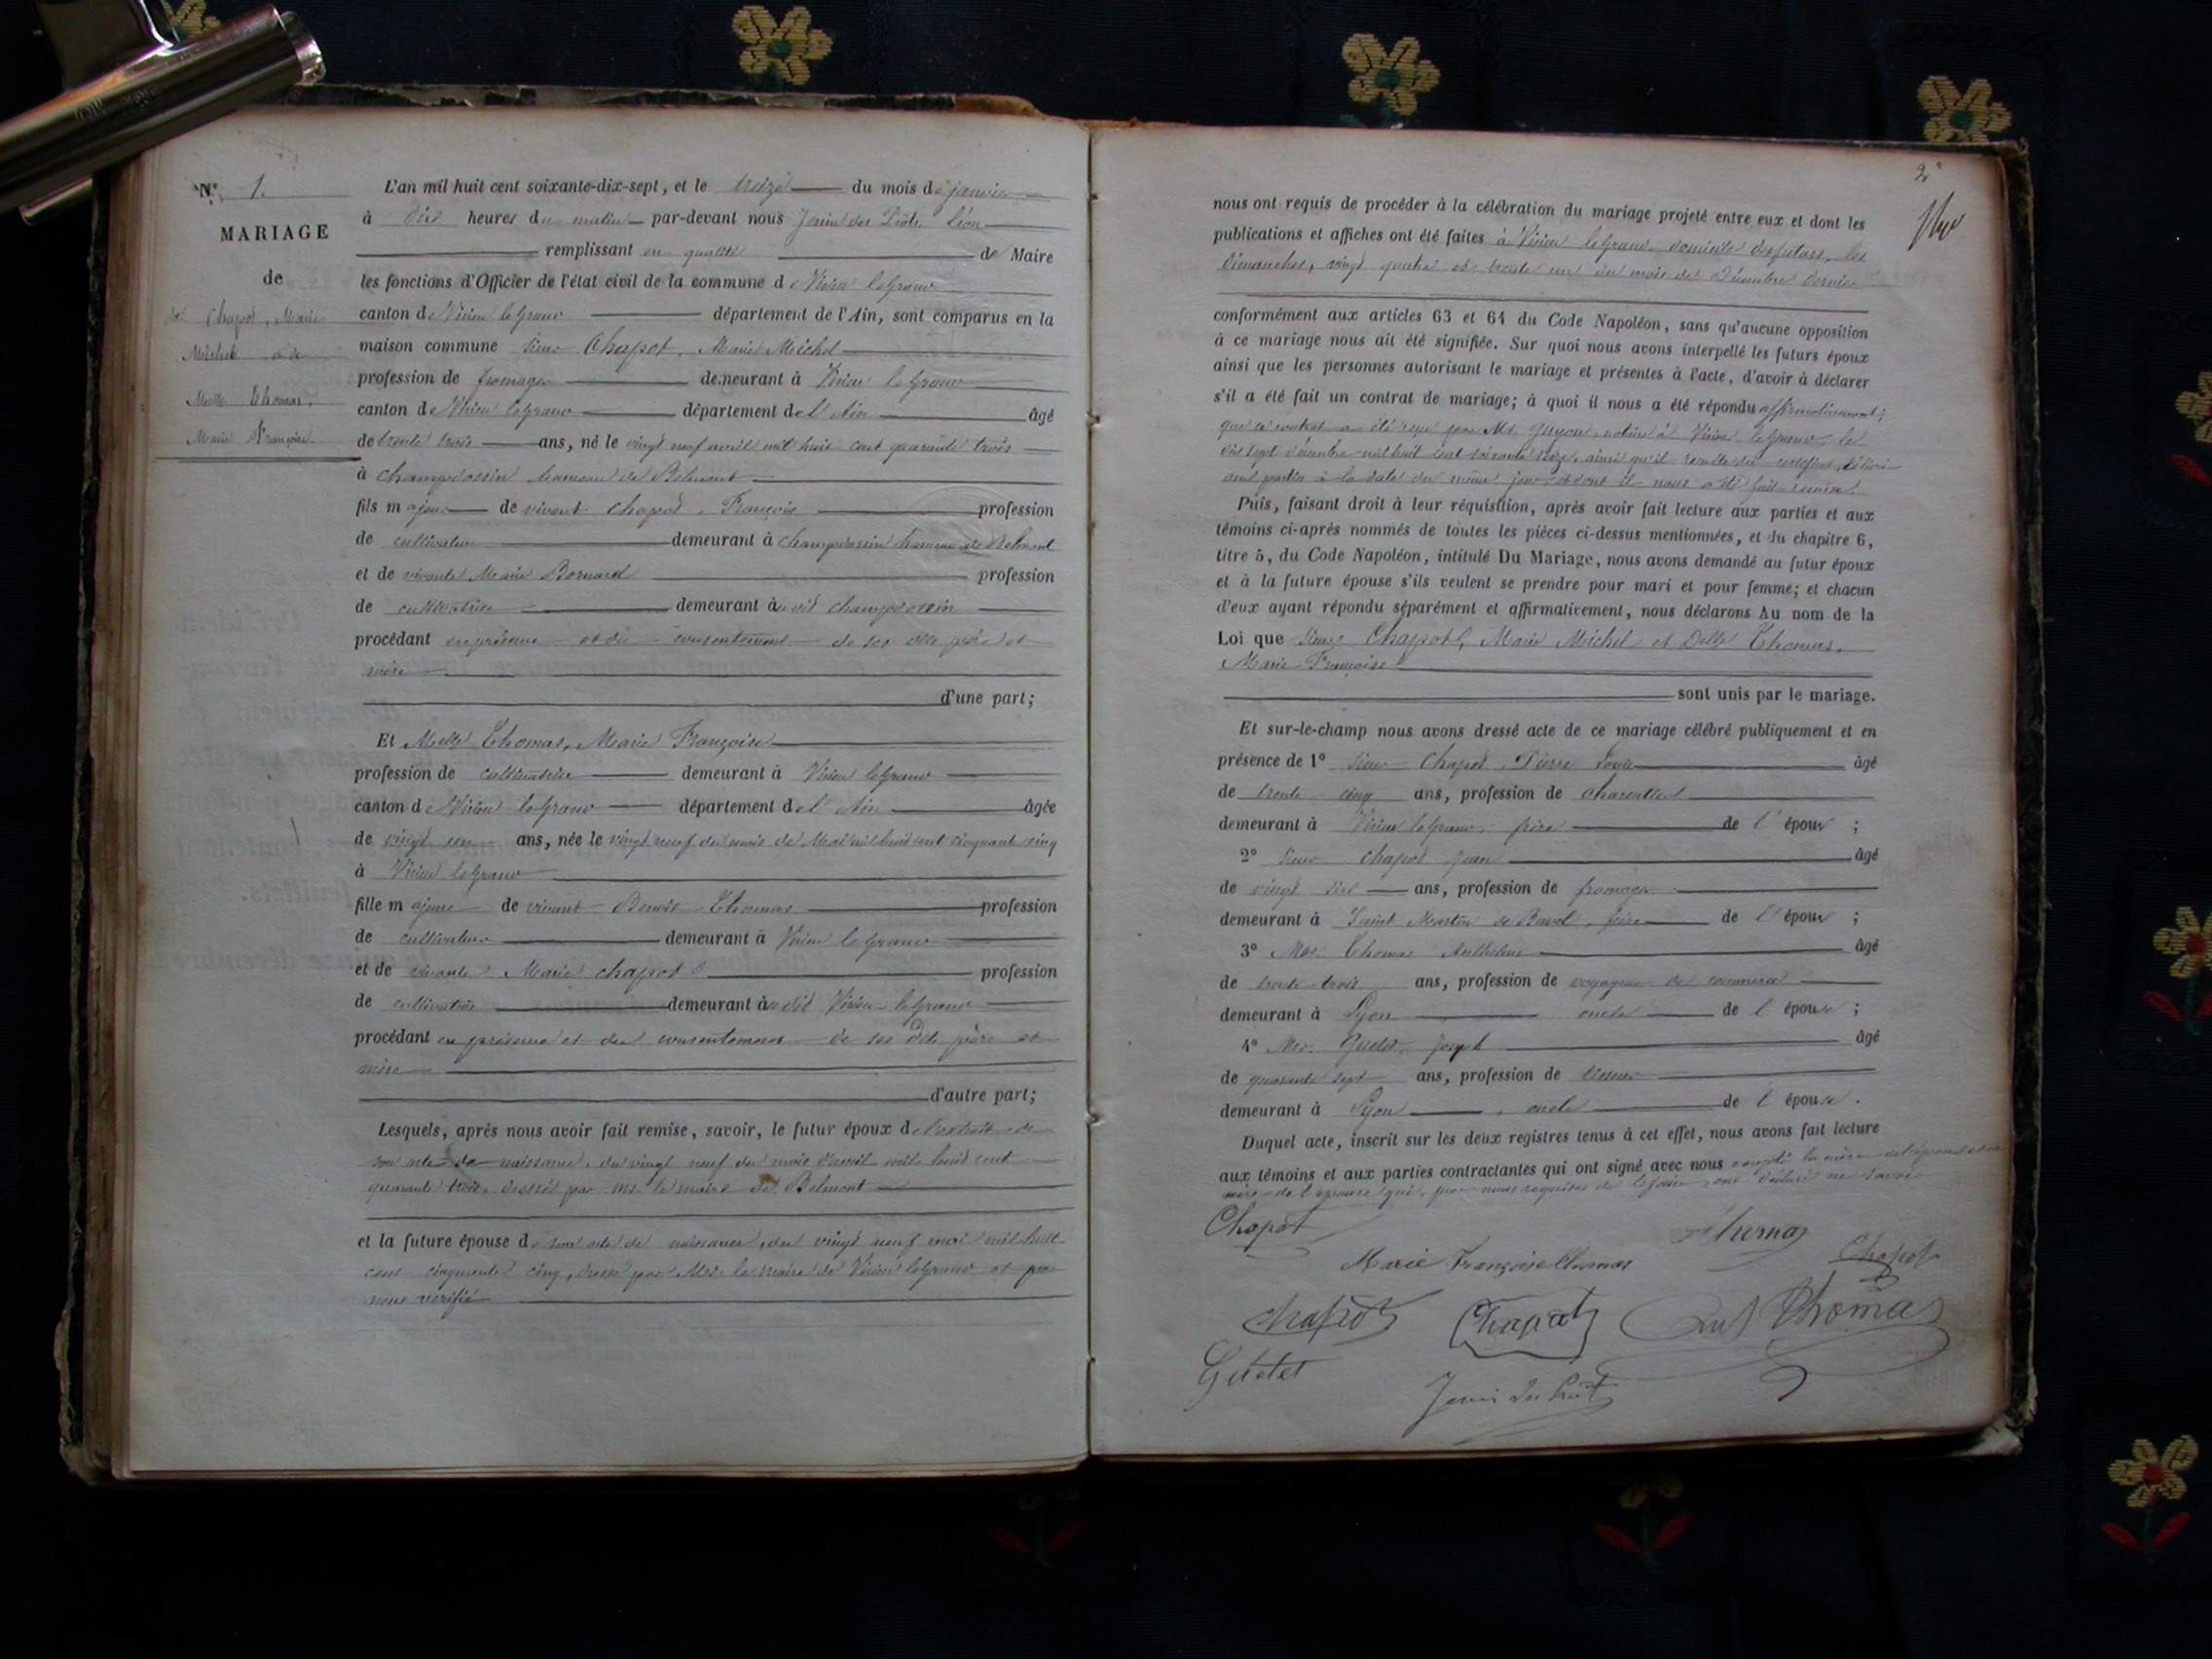 N° 1.
MARIAGE
de
Chapot, Marie
Michel et de
Melle Thomas,
Marie Françoise.
L'an mil huit cent soixante-dix-sept, et le treize du mois de janvier
à dix heures du matin par-devant nous Jenin des Prôts, Léon
remplissant en qualité de Maire
les fonctions d'Officier de l'état civil de la commune de Virieu leGrand
canton de Virieu leGrand département de l'Ain, sont comparus en la
maison commune sieur Chapot, Marie Michel
profession de fromager demeurant à Virieu le Grand
canton de Virieu leGrand département de l'Ain âgé
de trente trois ans, né le vingt neuf avril mil huit cent quarante trois
à Champdossin hameau de Belmont
fils majeur de vivant Chapot, François profession
de cultivateur demeurant à Champdossin hameau de Belmont
et de vivante Marie Bornard profession
de cultivatrice demeurant à dit Champdossin
procédant en présence et du consentement de ses père et
mère
d'une part;
Et Melle Thomas, Marie Françoise
profession de cultivatrice demeurant à Virieu leGrand
canton de Virieu leGrand département de l'Ain âgée
de vingt un ans, née le vingt neuf du mois de Mai mil huit cent cinquante cinq
à Virieu leGrand
fille majeure de vivant Benoit Thomas profession
de cultivateur demeurant à Virieu le Grand
et de vivante Marie Chapot profession
de cultivatrice demeurant au dit Virieu leGrand
procédant en présence et du consentement de ses dits père et
mère
d'autre part;
Lesquels, après nous avoir fait remise, savoir, le futur époux de l'extrait de
son acte de naissance, du vingt neuf du mois d'avril mil huit cent
quarante trois, dressé par Mr le maire de Belmont
et la future épouse de son acte de naissance, du vingt neuf mai mil huit
cent cinquante cinq, dressé par Mr le maire de Virieu leGrand et par
nous vérifié
2
nous ont requis de procéder à la célébration du mariage projeté entre eux et dont les
publications et affiches ont été faites à Virieu leGrand domicile des futurs, les
dimanches, vingt quatre et trente un du mois de Décembre dernier
conformément aux articles 63 et 64 du Code Napoléon, sans qu'aucune opposition
à ce mariage nous ait été signifiée. Sur quoi nous avons interpellé les futurs époux
ainsi que les personnes autorisant le mariage et présentes à l'acte, d'avoir à déclarer
s'il a été fait un contrat de mariage; à quoi il nous a été répondu affirmativement,
que ce contrat a été reçu par Me Guyon, notaire à Virieu leGrand, le
dix sept décembre mil huit cent soixante seize, ainsi qu'il résulte du certificat délivré
aux parties à la date du même jour et dont il nous a été fait remise.
Puis, faisant droit à leur réquisition, après avoir fait lecture aux parties et aux
témoins ci-après nommés de toutes les pièces ci-dessus mentionnées, et du chapitre 6,
titre 5, du Code Napoléon, intitulé Du Mariage, nous avons demandé au futur époux
et à la future épouse s'ils veulent se prendre pour mari et pour femme; et chacun
d'eux ayant répondu séparément et affirmativement, nous déclarons Au nom de la
Loi que sieur Chapot, Marie Michel et Delle Thomas,
Marie Françoise
sont unis par le mariage.
Et sur-le-champ nous avons dressé acte de ce mariage célébré publiquement et en
présence de 1° sieur Chapot Pierre Louis âgé
de trente cinq ans, profession de
demeurant à Virieu leGrand, frère de l'époux ;
2° sieur Chapot Jean âgé
de vingt six ans, profession de fromager
demeurant à Saint Martin de Bavel, frère de l'époux ;
3° Mr Thomas Anthelme âgé
de trente trois ans, profession de voyageur de commerce
demeurant à Lyon oncle de l'épouse ;
4° Mr Joseph âgé
de quarante sept ans, profession de
demeurant à Lyon, oncle de l'épouse.
Duquel acte, inscrit sur les deux registres tenus à cet effet, nous avons fait lecture
aux témoins et aux parties contractantes qui ont signé avec nous excepté la mère de l'époux et la
mère de l'épouse qui, par nous requises de le faire, ont déclaré ne savoir
Chapot
Thomas
Marie Françoise Thomas
Chapot
Chapot
Chapot
Thomas